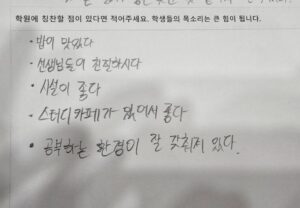 학원에 칭찬할 점이 있다면 적어주세요. 학생들의 목소리는 큰 힘이 됩니다.
• 밥이 맛있다
• 선생님들이 친절하시다
• 시설이 좋다
• 스터디카페가 있어서 좋다
• 공부하는 환경이 잘 갖춰져 있다.